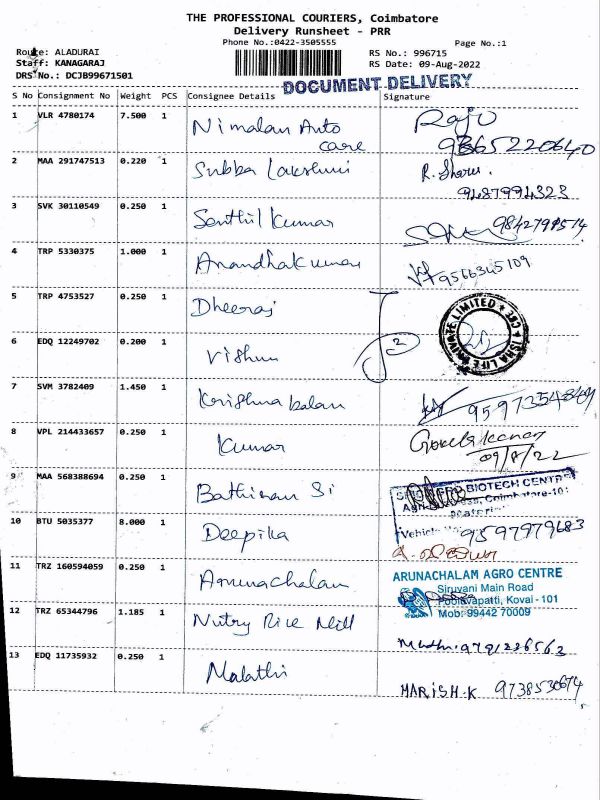 THE PROFESSIONAL COURIERS, Coimbatore
Delivery Runsheet - PRR
Phone No.:0422-3505555
Page No.:1
Route: ALADURAI
Staff: KANAGARAJ
DRS No.: DCJB99671501
RS No.: 996715
RS Date: 09-Aug-2022
DOCUMENT DELIVERY
S No Consignment No Weight PCS Consignee Details Signature
1 VLR 4780174 7.500 1 Nimalan Auto care Raju
9365220640
2 MAA 291747513 0.220 1 Subba Lakshmi
9487994323
3 SVK 30110549 0.250 1 Senthil Kumar
4 TRP 5330375 1.000 1 Anandhakumar 9566345109
5 TRP 4753527 0.250 1 Dheeraj
PRIVATE LIMITED * CBE * ISHA LIFE
6 EDQ 12249702 0.200 1 Vishnu 2
7 SVM 3782409 1.450 1 Krishna balan
8 VPL 214433657 0.250 1 Kumar
09/8/22
9 MAA 568388694 0.250 1
BIOTECH CENTRE
Coimbatore-10
Vehicle
10 BTU 5035377 8.000 1 Deepika 9597979683
11 TRZ 160594059 0.250 1 Arunachalam
ARUNACHALAM AGRO CENTRE
Siruvani Main Road
Kovai - 101
Mob: 99442 70009
12 TRZ 65344796 1.185 1 Nutry Rice Mill
9791226563
13 EDQ 11735932 0.250 1 Malathi
HARISH.K 9738530674